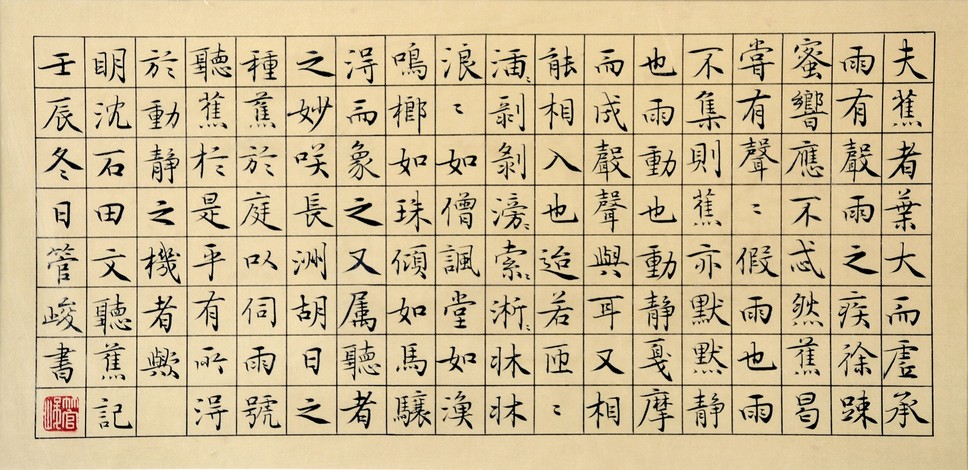 夫蕉者葉大而虛承
雨有聲雨之疾徐踈
蜜響應不忒然蕉曷
嘗有聲々假雨也雨
不集則蕉亦默默靜
也雨動也動靜戛摩
而成聲聲與耳又相
能相入也迨若匝々
剝剝滂々索々淅々牀牀
浪々如僧諷堂如漁
鳴榔如珠傾如馬驤
得而象之又属聽者
之妙咲長洲胡日之
種蕉於庭以伺雨號
聽蕉於是乎有所得
於動靜之機者歟
明沈石田文聽蕉記
壬辰冬日管峻書
管峻